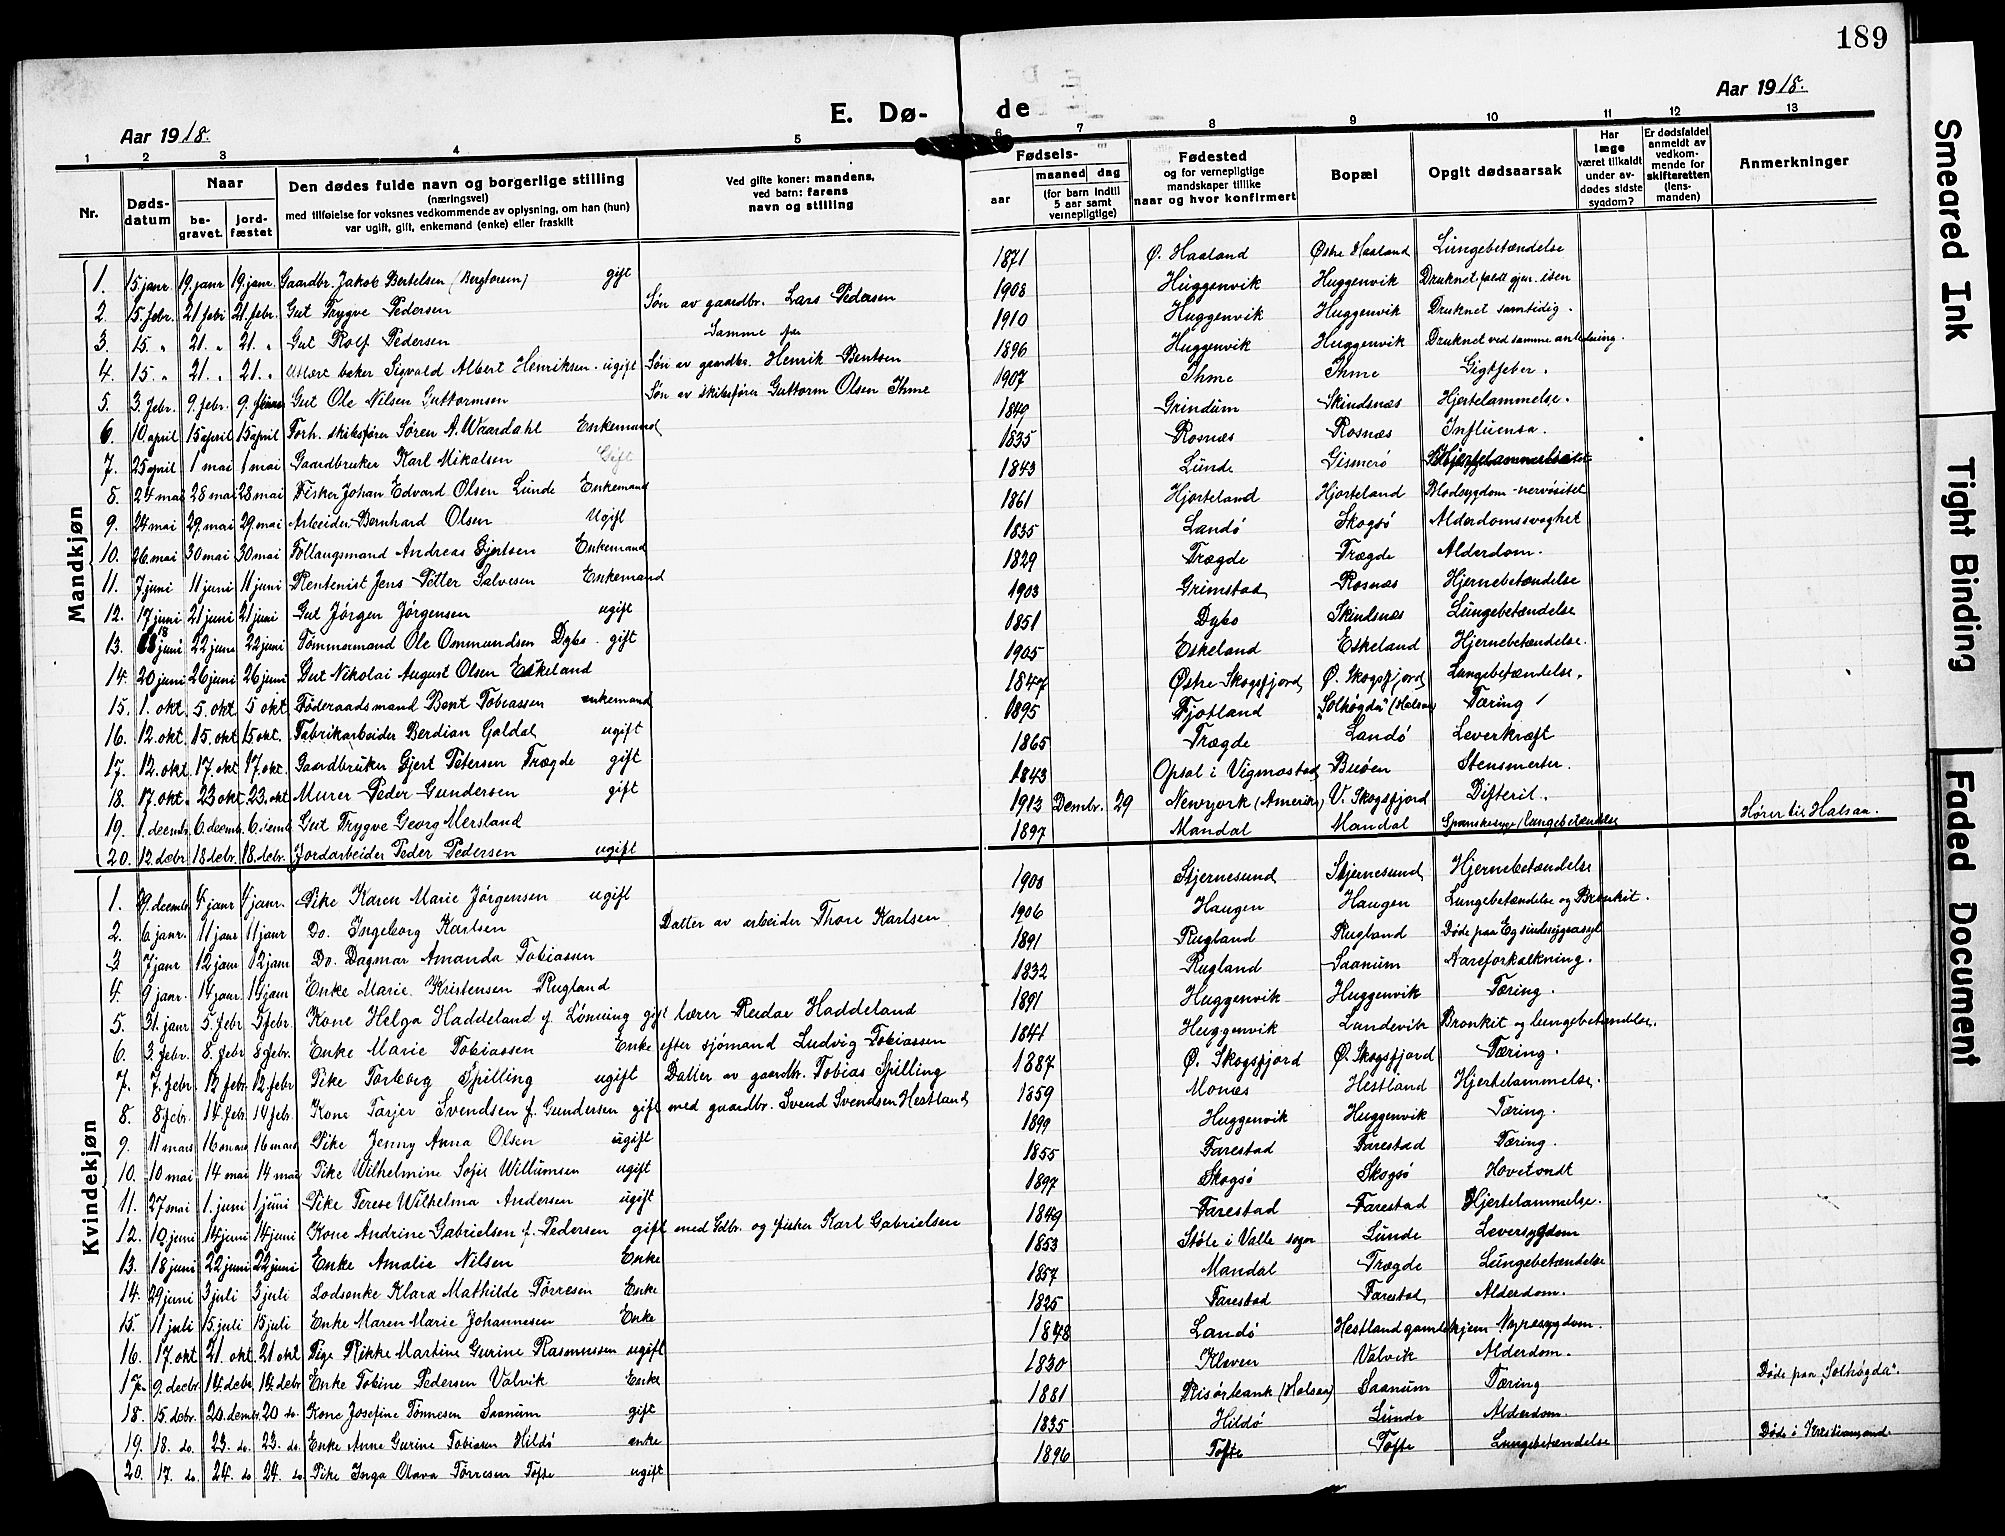 189
E. Dø- de
Aar 1918. Aar 1918.
1 2 3 4 5 6 7 8 9 10 11 12 13
Nr. Dødsdatum Naar begravet. jordfæstet Den dødes fulde navn og borgerlige stilling (næringsvei) med tilføielse for voksnes vedkommende av oplysning, om han (hun) var ugift, gift, enkemand (enke) eller fraskilt Ved gifte koner: mandens, ved barn: farens navn og stilling Fødsels- aar maaned dag (for barn indtil 5 aar samt vernepligtige) Fødested og for vernepligtige mandskaper tillike naar og hvor konfirmert Bopæl Opgit dødsaarsak Har læge været tilkaldt under avdødes sidste sygdom? Er dødsfaldet anmeldt av vedkommende for skifteretten (lensmanden) Anmerkninger
Mandkjøn
1. 15 janr. 19. janr 19. janr. Gaardbr. Jakob Bertelsen (Bergtorsen) gift 1871 Ø. Haaland Østre Haaland Lungebetændelse
2. 15. febr. 21 febr 21. febr. Gut Trygve Pedersen Søn av gaardbr. Lars Pedersen 1903 Huggenvik Huggenvik Druknet, faldt gjen. isen
3. 15. " 21. " 21. " Gut Rolf Pedersen Samme far 1910 Huggenvik Huggenvik Druknet samtidig.
4. 15. " 21. " 21. " baker Sigvald Albert Henriksen. ugift Søn av gaardbr. Henrik Bentsen 1896 Huggenvik Huggenvik Druknet ved samme anledning.
5. 3. febr. 9. febr. 9. Gut Ole Nilsen Guttormsen Søn av skibsfører Guttorm Olsen Ihme 1907 Ihme Ihme Gigtfeber.
6. 10 april 15 april 15 april Forh. skibsfører Søren A. Waardahl Enkemand 1849 Grindum Skindsnæs Hjertelammelse.
7. 25 april 1 mai 1 mai Gaardbruker Karl Mikalsen Gift 1835 Rosnæs Rosnæs Influensa.
8. 24 mai 28 mai 28 mai Fisker Johan Edvard Olsen Lunde Enkemand 1843 Lunde Gismerø
9. 24 mai 29. mai 29. mai Arbeider Bernhard Olsen Ugift 1861 Hjorteland Hjorteland Blodsygdom - nervøsitet
10. 26 mai 30 mai 30 mai Føllaugsmand Andreas Gjertsen Enkemand 1835 Landø Skogsø Alderdomssvaghet
11. 7 juni 11 juni 11 juni Rentenist Jens Petter Salvesen Enkemand 1829 Trægde Trægde Alderdom.
12. 17 juni 21 juni 21 juni Gut Jørgen Jørgensen ugift 1903 Grimstad Rosnæs Hjernebetændelse
13. 18 juni 22 juni 22 juni Tømmermand Ole Ommundsen Dybo. gift 1851 Dybo Skindsnæs Lungebetændelse
14. 20 juni 26 juni 26 juni Gut Nikolai August Olsen Eskeland 1905 Eskeland Eskeland Hjernebetændelse.
15. 1. okt 5. okt 5 okt Føderaadsmand Bent Tobiassen enkemand 1847 Østre Skogsfjord Ø. Skogsfjord Lungebetændelse.
16. 12. okt. 15. okt 15 okt. Fabrikarbeider Berdian Galdal ugift 1895 Fjotland "Solhøgda" (Halsaa) Tæring
17. 12. okt 17. okt 17 okt. Gaardbruker Gjert Petersen Trægde gift 1865 Trægde Landø Leverkræft
18. 17. okt. 23 okt 23. okt Murer Peder Gundersen gift 1843 Opsal i Vigmostad Buøen Stensmerter.
19. 1. decmbr 6. decmb. 6. decmb Gut Trygve Georg Mersland 1913 Dembr. 29 Newyork (Amerika) V. Skogsfjord Difterit. Hører til Halsaa.
20. 12. debr 18 debr. 18. debr. Jordarbeider Peder Pedersen ugift 1897 Mandal Mandal Spanskesyge / lungebetændelse
Kvindekjøn
1. 29. decmbr 4 janr 4 janr. Pike Karen Marie Jørgensen ugift 1903 Stjernesund Stjernesund Hjernebetændelse
2. 6. janr. 11 janr 11 janr Do. Ingeborg Karlsen Datter av arbeider Thore Karlsen 1906 Haugen Haugen Lungebetændelse og Bronkit.
3 7 janr 12 janr 12 janr Do. Dagmar Amanda Tobiassen 1891 Rugland Rugland Døde paa Eg sindssygeasyl
4. 9 janr. 14 janr 14 janr Enke Marie Kristensen Rugland 1832 Rugland Saanum Aareforkalkning.
5. 31. janr 5. febr 5 febr. Kone Helga Haddeland f. Lønning gift lærer Reidar Haddeland 1891 Huggenvik Huggenvik Tæring.
6. 3. febr. 8. febr 8 febr. Enke Marie Tobiassen Enke efter sjømand Ludvig Tobiassen 1841 Huggenvik Landevik Bronkit og lungebetændelse.
7. 7. febr 13 febr 12 febr Pike Torborg Spilling ugift Datter av gaardbr. Tobias Spilling 1887 Ø. Skogsfjord Ø. Skogsfjord Tæring.
8. 8 febr. 14 febr. 14 febr. Kone Tarjer Svendsen f. Gundersen gift med gaardbr. Svend Svendsen Hestland 1859 Monæs Hestland Hjertelammelse.
9. 11 mars 16 mars 16 mars Pike Jenny Anna Olsen ugift 1899 Huggenvik Huggenvik Tæring.
10. 10 mai 14 mai 14 mai Pike Wilhelmine Sofie Willumsen ugift 1855 Farestad Farestad Tæring.
11. 27 mai 1. juni 1 juni Pike Terese Wilhelma Andersen ugift 1897 Skogsø Skogsø Hovetondt
12. 10 juni 14 juni 14 juni Kone Andrine Gabrielsen f. Pedersen gift med Gdbr. og fisker Karl Gabrielsen 1849 Farestad Farestad Hjertelammelse.
13. 18 juni 22 juni 22 juni Enke Amalie Nilsen Enke 1853 Støle i Valle sogn Lunde Leversygdom
14. 29 juni 3 juli 3 juli Losenke Klara Mathilde Tørresen Enke 1857 Mandal Trægde Lungebetændelse
15. 11 juli 15 juli 15 juli Enke Maren Marie Johannesen Enke 1825 Farestad Farestad Alderdom.
16. 17. okt 21. okt 21 okt Pige Rikke Martine Gurine Rasmussen ugift 1848 Landø Hestland gamlehjem Nyresygdom.
17. 9. decbr 14. debr 14. debr Enke Tobine Pedersen Valvik Enke 1830 Kleven Valvik Alderdom.
18. 15. debr. 20. dembr. 20 do. Kone Josefine Tønnesen Saanum gift 1881 Risørbank (Halsaa) Saanum Tæring Døde paa "Solhøgda".
19. 18. do. 23. do. 23. do. Enke Anne Gurine Tobiasen Hildø enke 1835 Hildø Lunde Alderdom.
20. 17. do. 24. do 24. do Pike Inga Olava Tørresen Tofte ugift 1896 Tofte Tofte Lungebetændelse Døde i Kristiansand.
Smeared Ink
Tight Binding
Faded Document